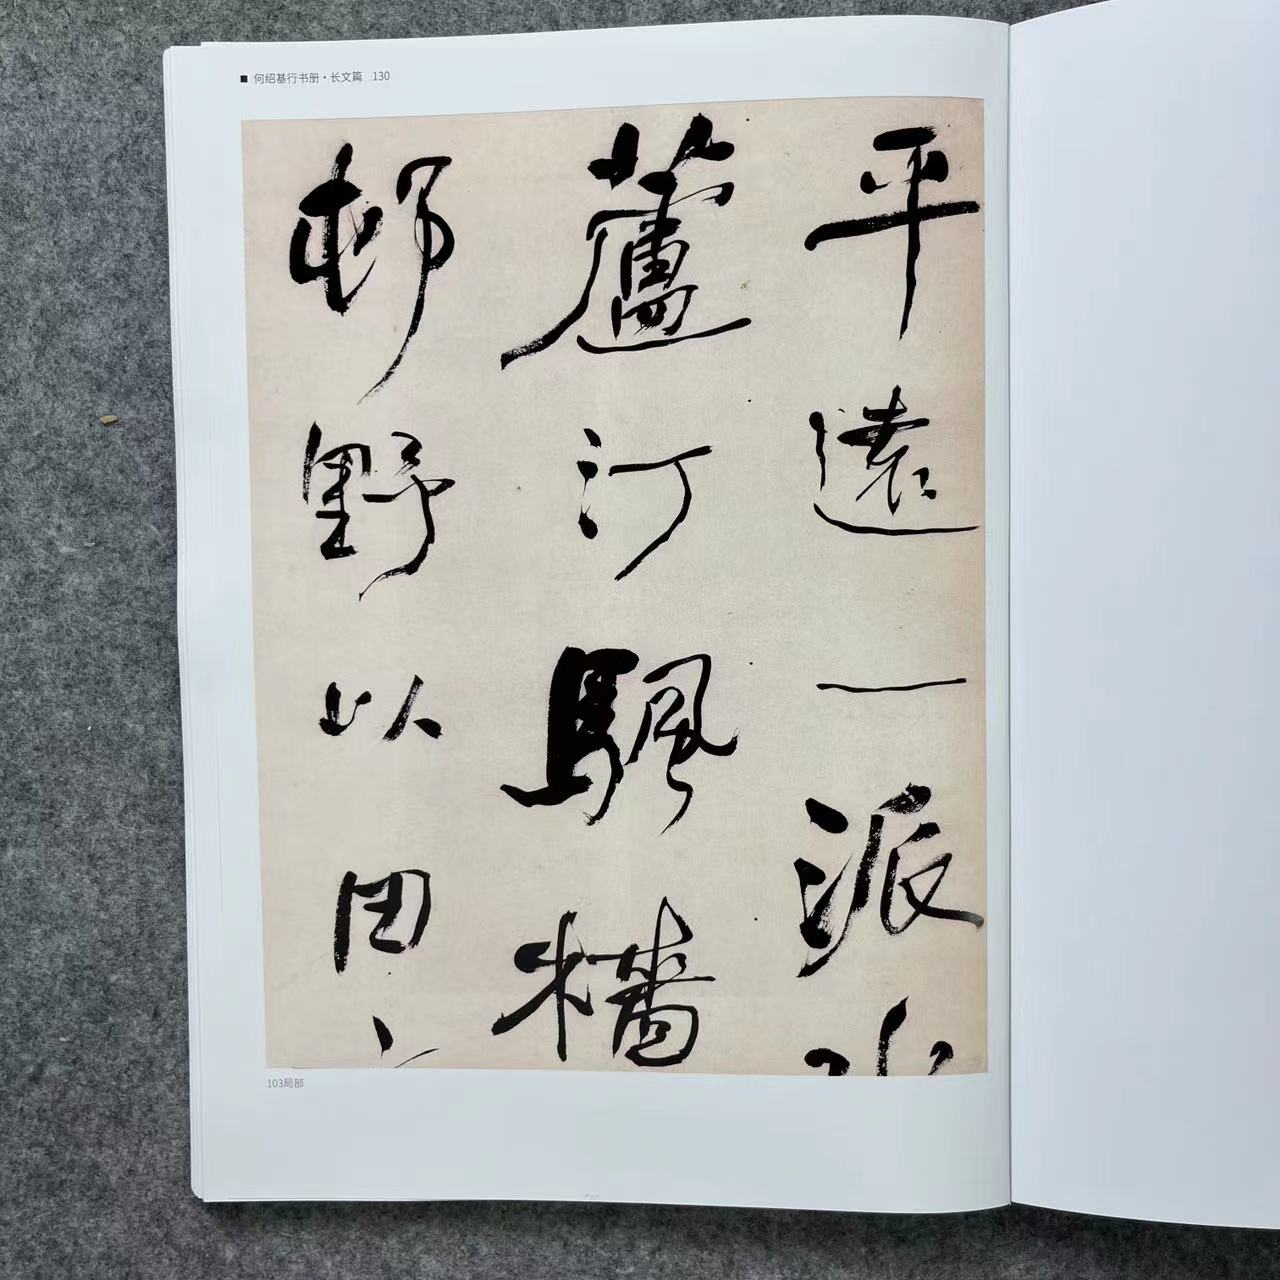 ■ 何绍基行书册·长文篇 130
平遠一派水
蘆汀颿檣
邨野以田
103局部